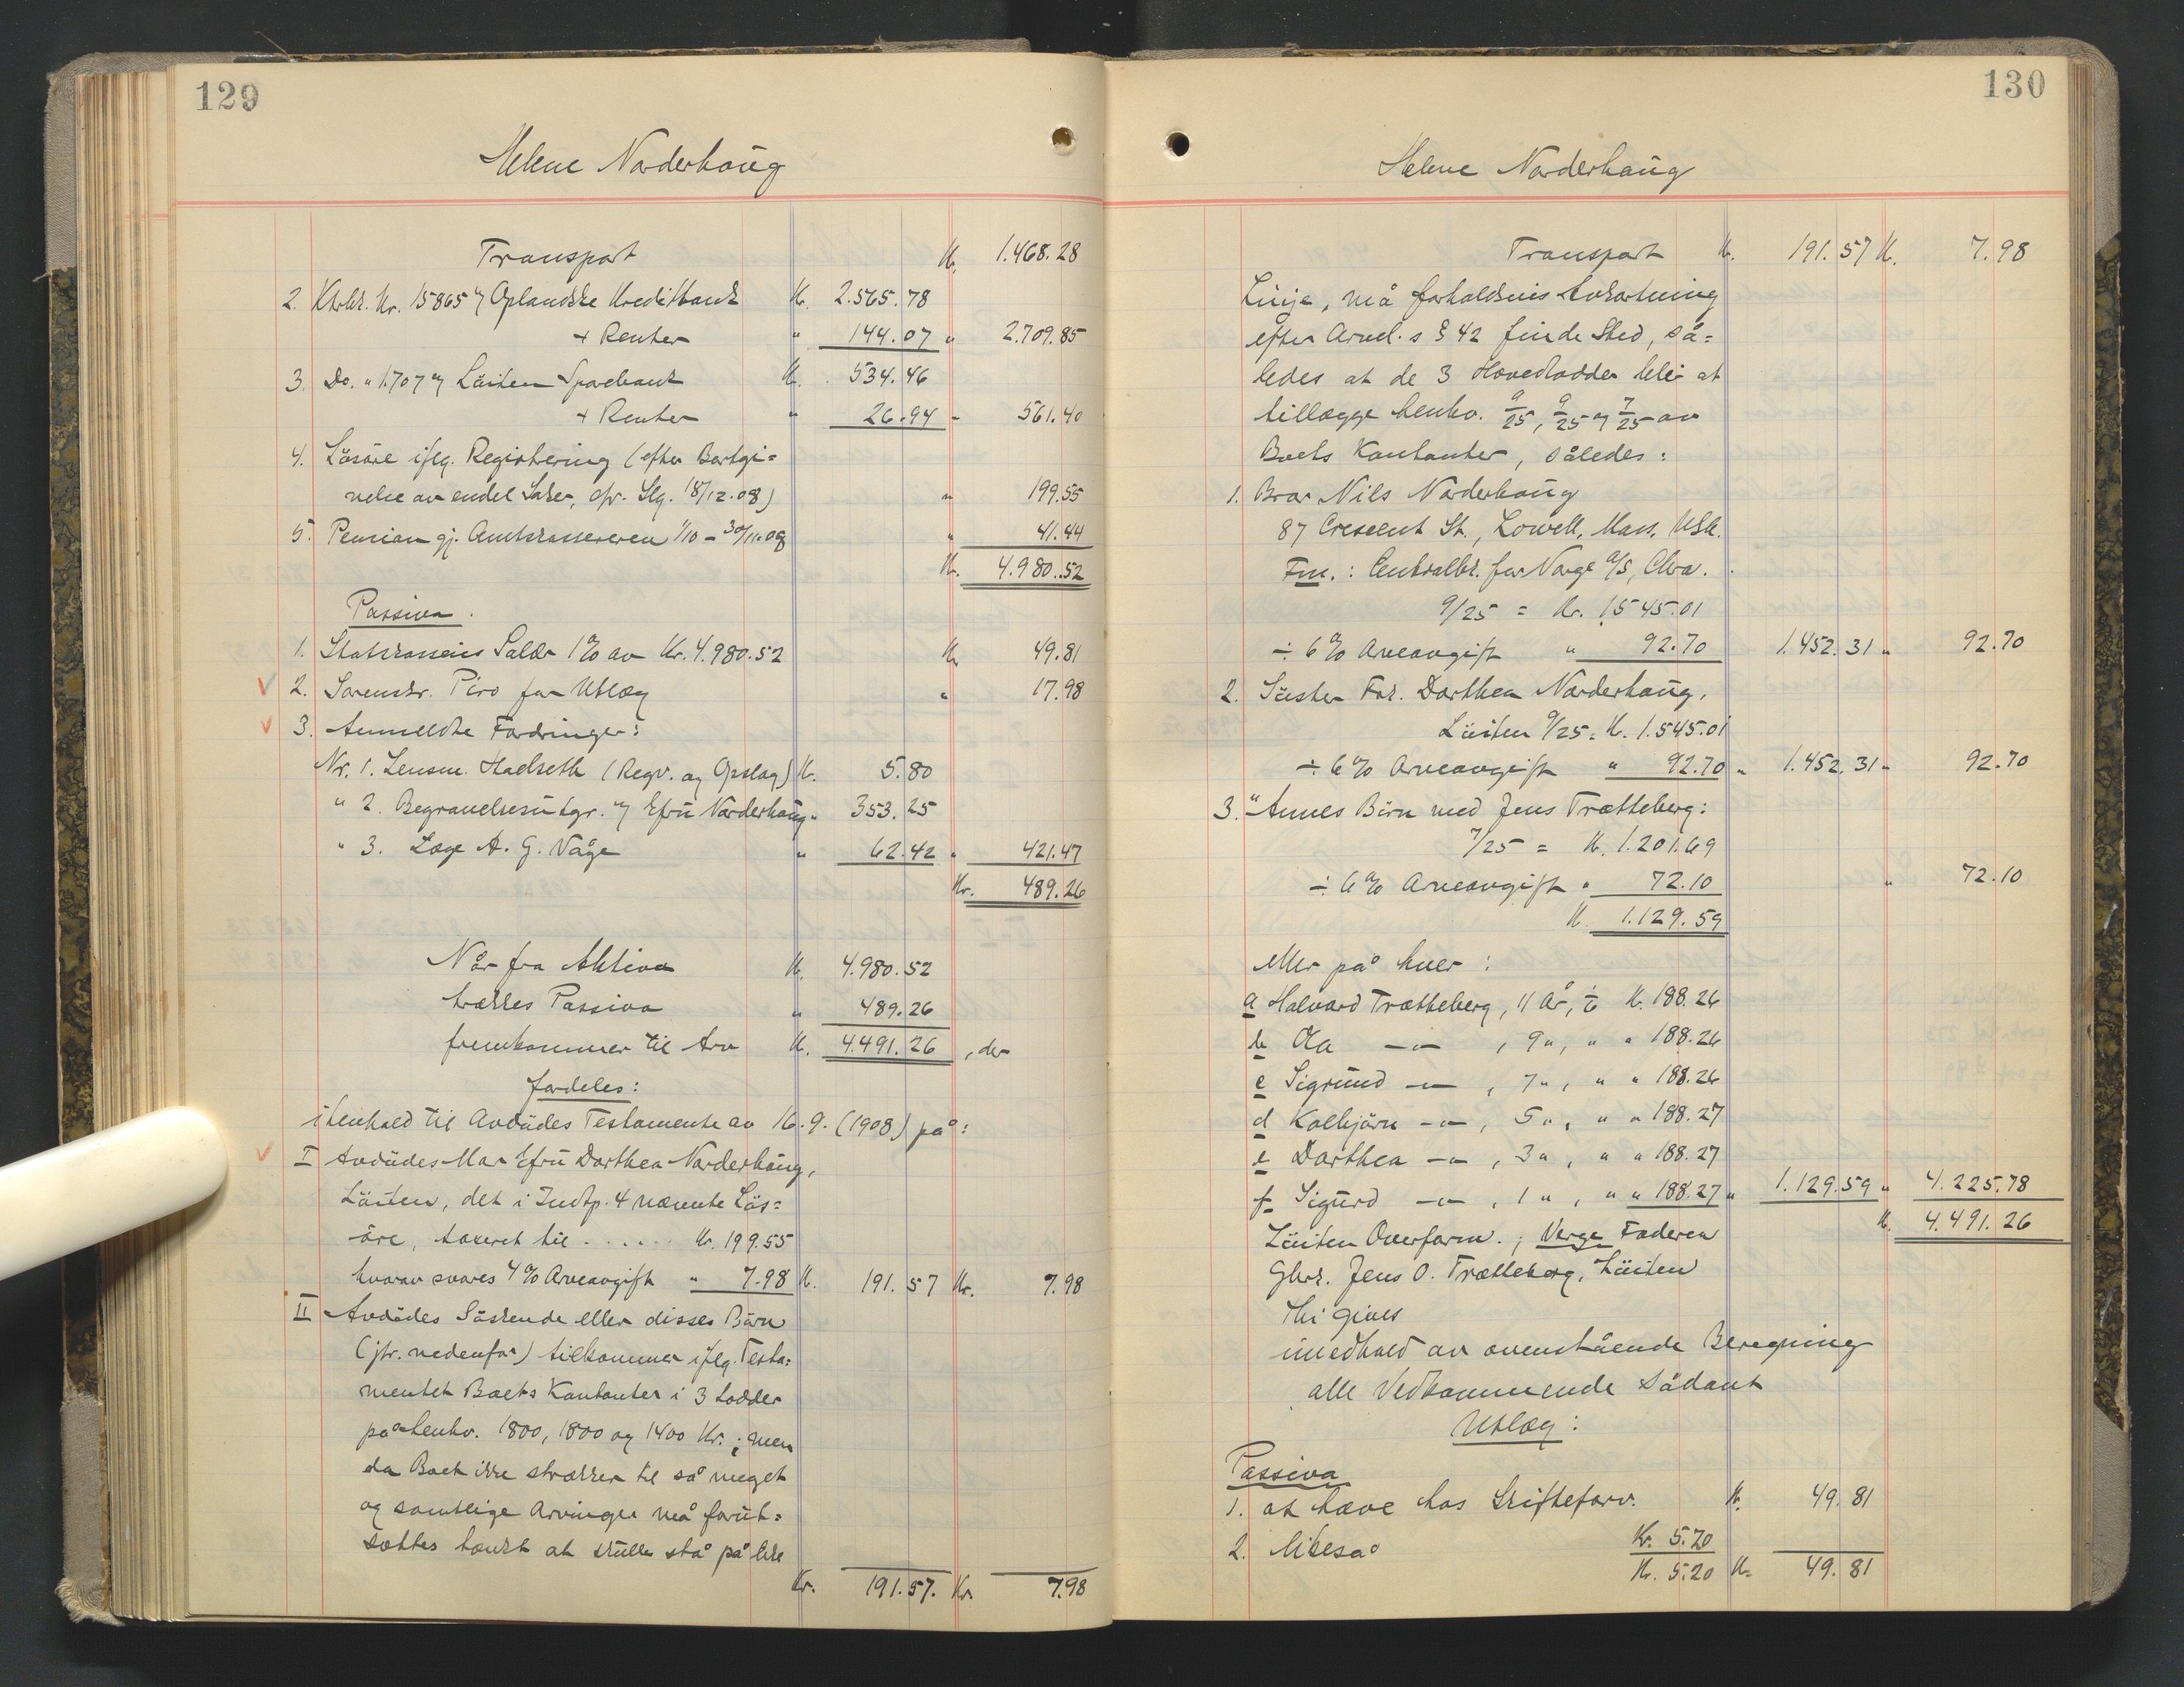 129
Helene Norderhaug
Transport Kr. 1.468.28
2. Ktrbk. Nr. 15865 Oplandske Kreditbank Kr. 2.565.78
+ Renter " 144.07 " 2.709.85
3. Do. " 1.707 Löiten Sparebank Kr. 534.46
+ Renter " 26.94 " 561.40
4. Lösöre iflg. Registrering (efter Bortgi=
velse av endel Saker, cfr. Slg. 18/12.08) " 199.55
5. Pension gj. Amtskassereren 1/10 - 30/11.08 " 41.44
Kr. 4.980.52
Passiva.
1. Statskassens Salær 1% av Kr. 4.980.52 Kr. 49.81
2. Sorenskr. Piro for Utlæg " 17.98
3. Anmeldte Fordringer:
Nr. 1. Lensm. Haelseth (Regv. og Opslag) Kr. 5.80
" 2. Begravelsesutgr. Efru Norderhaug " 353.25
" 3. Læge A. G. Våge " 62.42 " 421.47
Kr. 489.26
Når fra Aktiva Kr. 4.980.52
trækkes Passiva " 489.26
fremkommer til Arv Kr. 4.491.26, der
fordeles:
i Henhold til Avdödes Testamente av 16.9.(1908) på:
I Avdödes Mor Efru Dorthea Norderhaug,
Löiten, det i Indtp. 4 nævnte Lös=
öre, taxeret til ...... Kr. 199.55
hvorav svares 4% Arveavgift " 7.98 Kr. 191.57 Kr. 7.98
II Avdödes Söskende eller disses Börn
(jfr. nedenfor) tilkommer iflg. Testa=
mentet Boets Kontanter i 3 Lodder
på henhv. 1800, 1800 og 1400 Kr.; men
da Boet ikke strækker til så meget
og samtlige Arvinger må forut=
sættes tænkt at skulle stå på like
Kr. 191.57. Kr. 7.98
130
Helene Norderhaug
Transport Kr. 191.57 Kr. 7.98
Linje, må forholdsvis Avkortning
efter Arvel.s § 42 finde Sted, så=
ledes at de 3 Hovedlodder blir at
tillægge henhv. 9/25, 9/25 og 7/25 av
Boets Kontanter, således:
1. Bror Nils Norderhaug
87 Crescent St., Lowell, Mass. USA.
Fm.: Centralbk. for Norge A/S, Chra.
9/25 = Kr. 1545.01
÷ 6% Arveavgift " 92.70 1.452.31 " 92.70
2. Söster Frk. Dorthea Norderhaug,
Löiten 9/25 = Kr. 1.545.01
÷ 6% Arveavgift " 92.70 " 1.452.31 " 92.70
3. " Annes Börn med Jens Trætteberg:
7/25 = Kr. 1.201.69
÷ 6% Arveavgift " 72.10 " 72.10
Kr. 1.129.59
eller på hver:
a Halvard Trætteberg, 11 År, 1/6 Kr. 188.26
b Ola —"— , 9 ", " " 188.26
c Sigrund —"— , 7 ", " " 188.26
d Kolbjörn —"—, 5 ", " " 188.27
e Dorthea —"— , 3 ", " " 188.27
f Sigurd —"— , 1 ", " " 188.27 " 1.129.59 " 4.225.78
Kr. 4.491.26
Löiten Overform.; Verge Faderen
Gbrk. Jens O. Trætteberg, Löiten
Thi gives
i medhold av ovenstående Beregning
alle Vedkommende sådant
Utlæg:
Passiva
1. at hæve hos Skifteforv. Kr. 49.81
2. likeså Kr. 5.20
Kr. 5.20 Kr. 49.81